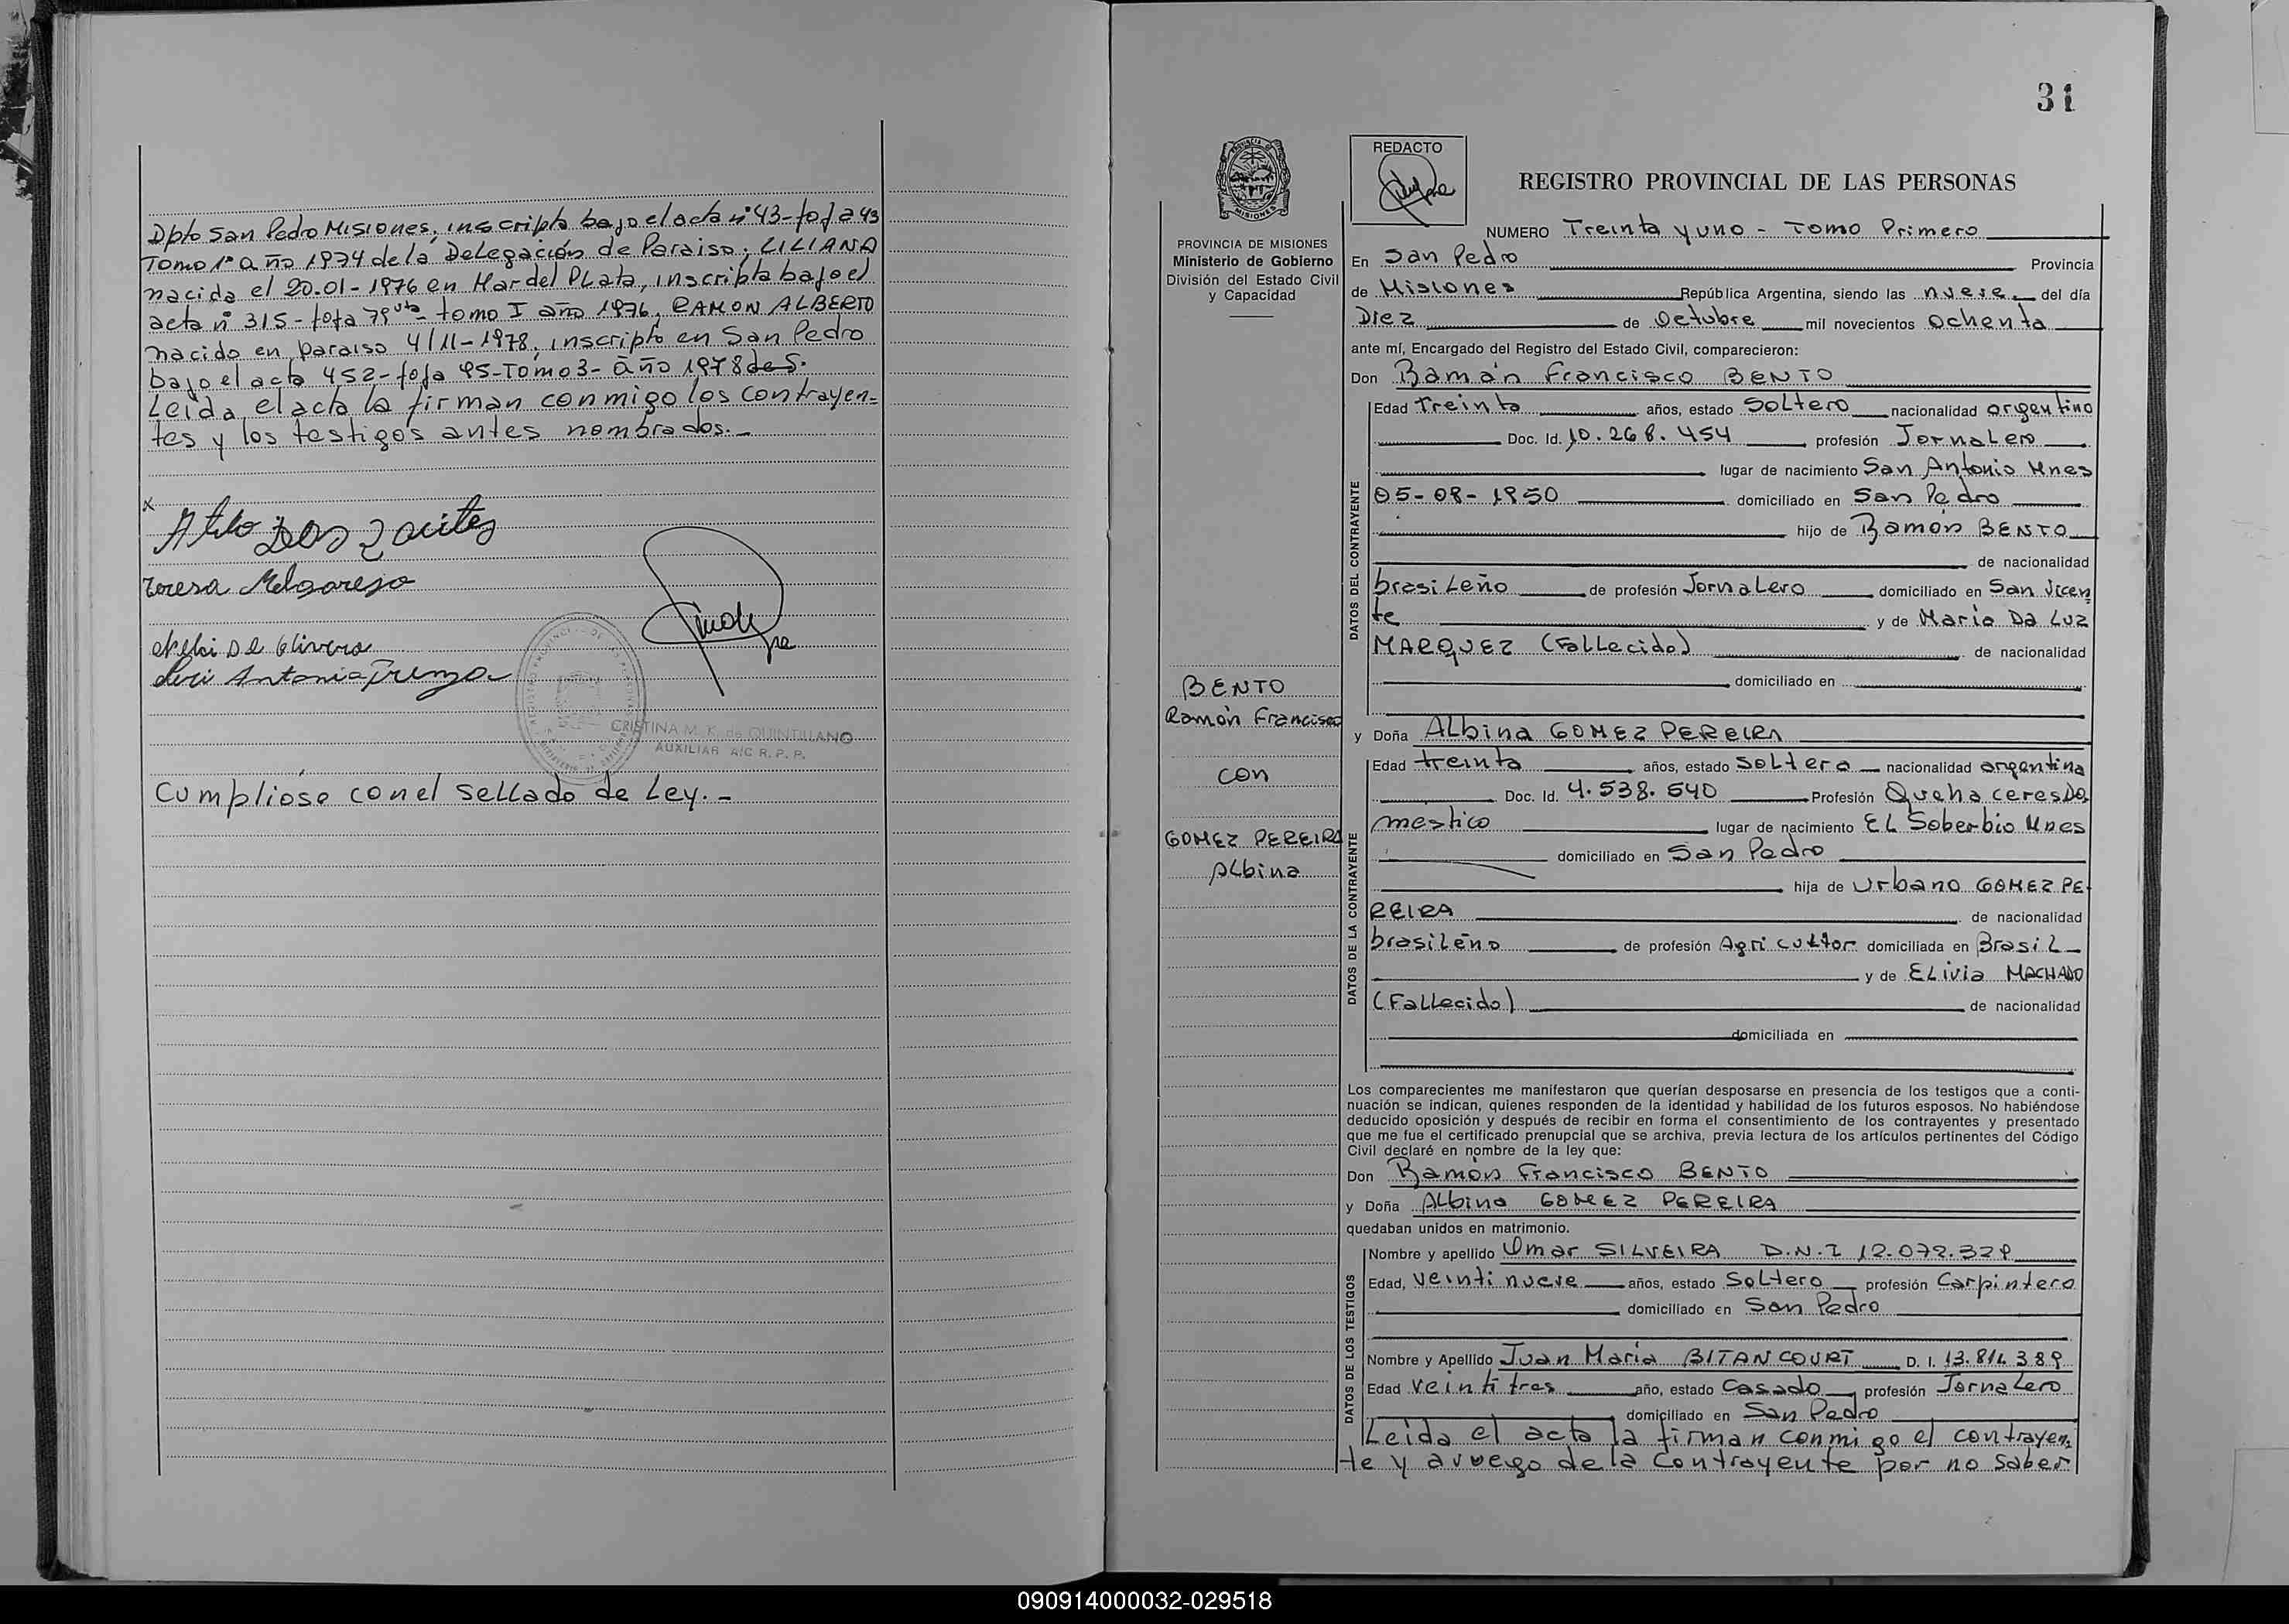 Dpto San Pedro Misiones, inscripto bajo el acta nº 43-foja 43
Tomo 1º año 1974 de la Delegación de Paraiso; LILIANA
nacida el 20-01-1976 en Mar del Plata, inscripta bajo el
acta nº 315-foja 79 vta- tomo I año 1976, RAMON ALBERTO
nacido en paraiso 4/11-1978, inscripto en San Pedro
bajo el acta 452-foja 95-Tomo 3-año 1978
Leida el acta la firman conmigo los contrayen=
tes y los testigos antes nombrados.-
x
Dos
Teresa Melgarejo
De Olivera
Antonia
CRISTINA M. K. de QUINTILLANO
AUXILIAR A/C R. P. P.
Cumplióse con el sellado de Ley.-
31
PROVINCIA DE MISIONES
Ministerio de Gobierno
División del Estado Civil
y Capacidad
REDACTO
REGISTRO PROVINCIAL DE LAS PERSONAS
NUMERO Treinta y uno - Tomo Primero
En San Pedro Provincia
de Misiones República Argentina, siendo las nueve del día
Diez de Octubre mil novecientos ochenta
ante mí, Encargado del Registro del Estado Civil, comparecieron:
Don Ramón Francisco BENTO
DATOS DEL CONTRAYENTE
Edad Treinta años, estado Soltero nacionalidad argentino
Doc. Id. 10.268.454 profesión Jornalero
lugar de nacimiento San Antonio Mnes
05-08-1950 domiciliado en San Pedro
hijo de Ramón BENTO
de nacionalidad
brasileño de profesión Jornalero domiciliado en San Vicen
te y de María Da Luz
MARQUEZ (Fallecido) de nacionalidad
domiciliado en
BENTO
Ramón Francisco
con
GOMEZ PEREIRA
Albina
y Doña Albina GOMEZ PEREIRA
DATOS DE LA CONTRAYENTE
Edad treinta años, estado Soltera nacionalidad argentina
Doc. Id. 4.538.540 Profesión Queha ceres Do
mestico lugar de nacimiento El Soberbio Mnes
domiciliado en San Pedro
hija de Urbano GOMEZ PE
REIRA de nacionalidad
brasileño de profesión Agricultor domiciliada en Brasil
y de Elivia MACHADO
(Fallecido) de nacionalidad
domiciliada en
Los comparecientes me manifestaron que querían desposarse en presencia de los testigos que a conti-
nuación se indican, quienes responden de la identidad y habilidad de los futuros esposos. No habiéndose
deducido oposición y después de recibir en forma el consentimiento de los contrayentes y presentado
que me fue el certificado prenupcial que se archiva, previa lectura de los artículos pertinentes del Código
Civil declaré en nombre de la ley que:
Don Ramón Francisco BENTO
y Doña Albina GOMEZ PEREIRA
quedaban unidos en matrimonio.
DATOS DE LOS TESTIGOS
Nombre y apellido Omar SILVEIRA D.N.I 12.072.329
Edad, veinti nueve años, estado Soltero profesión Carpintero
domiciliado en San Pedro
Nombre y Apellido Juan María BITANCOURT D. I. 13.814.389
Edad veintitres año, estado Casado profesión Jornalero
domiciliado en San Pedro
Leida el acta la firman conmigo el contrayen
te y aruego de la contrayente por no saber
090914000032-029518